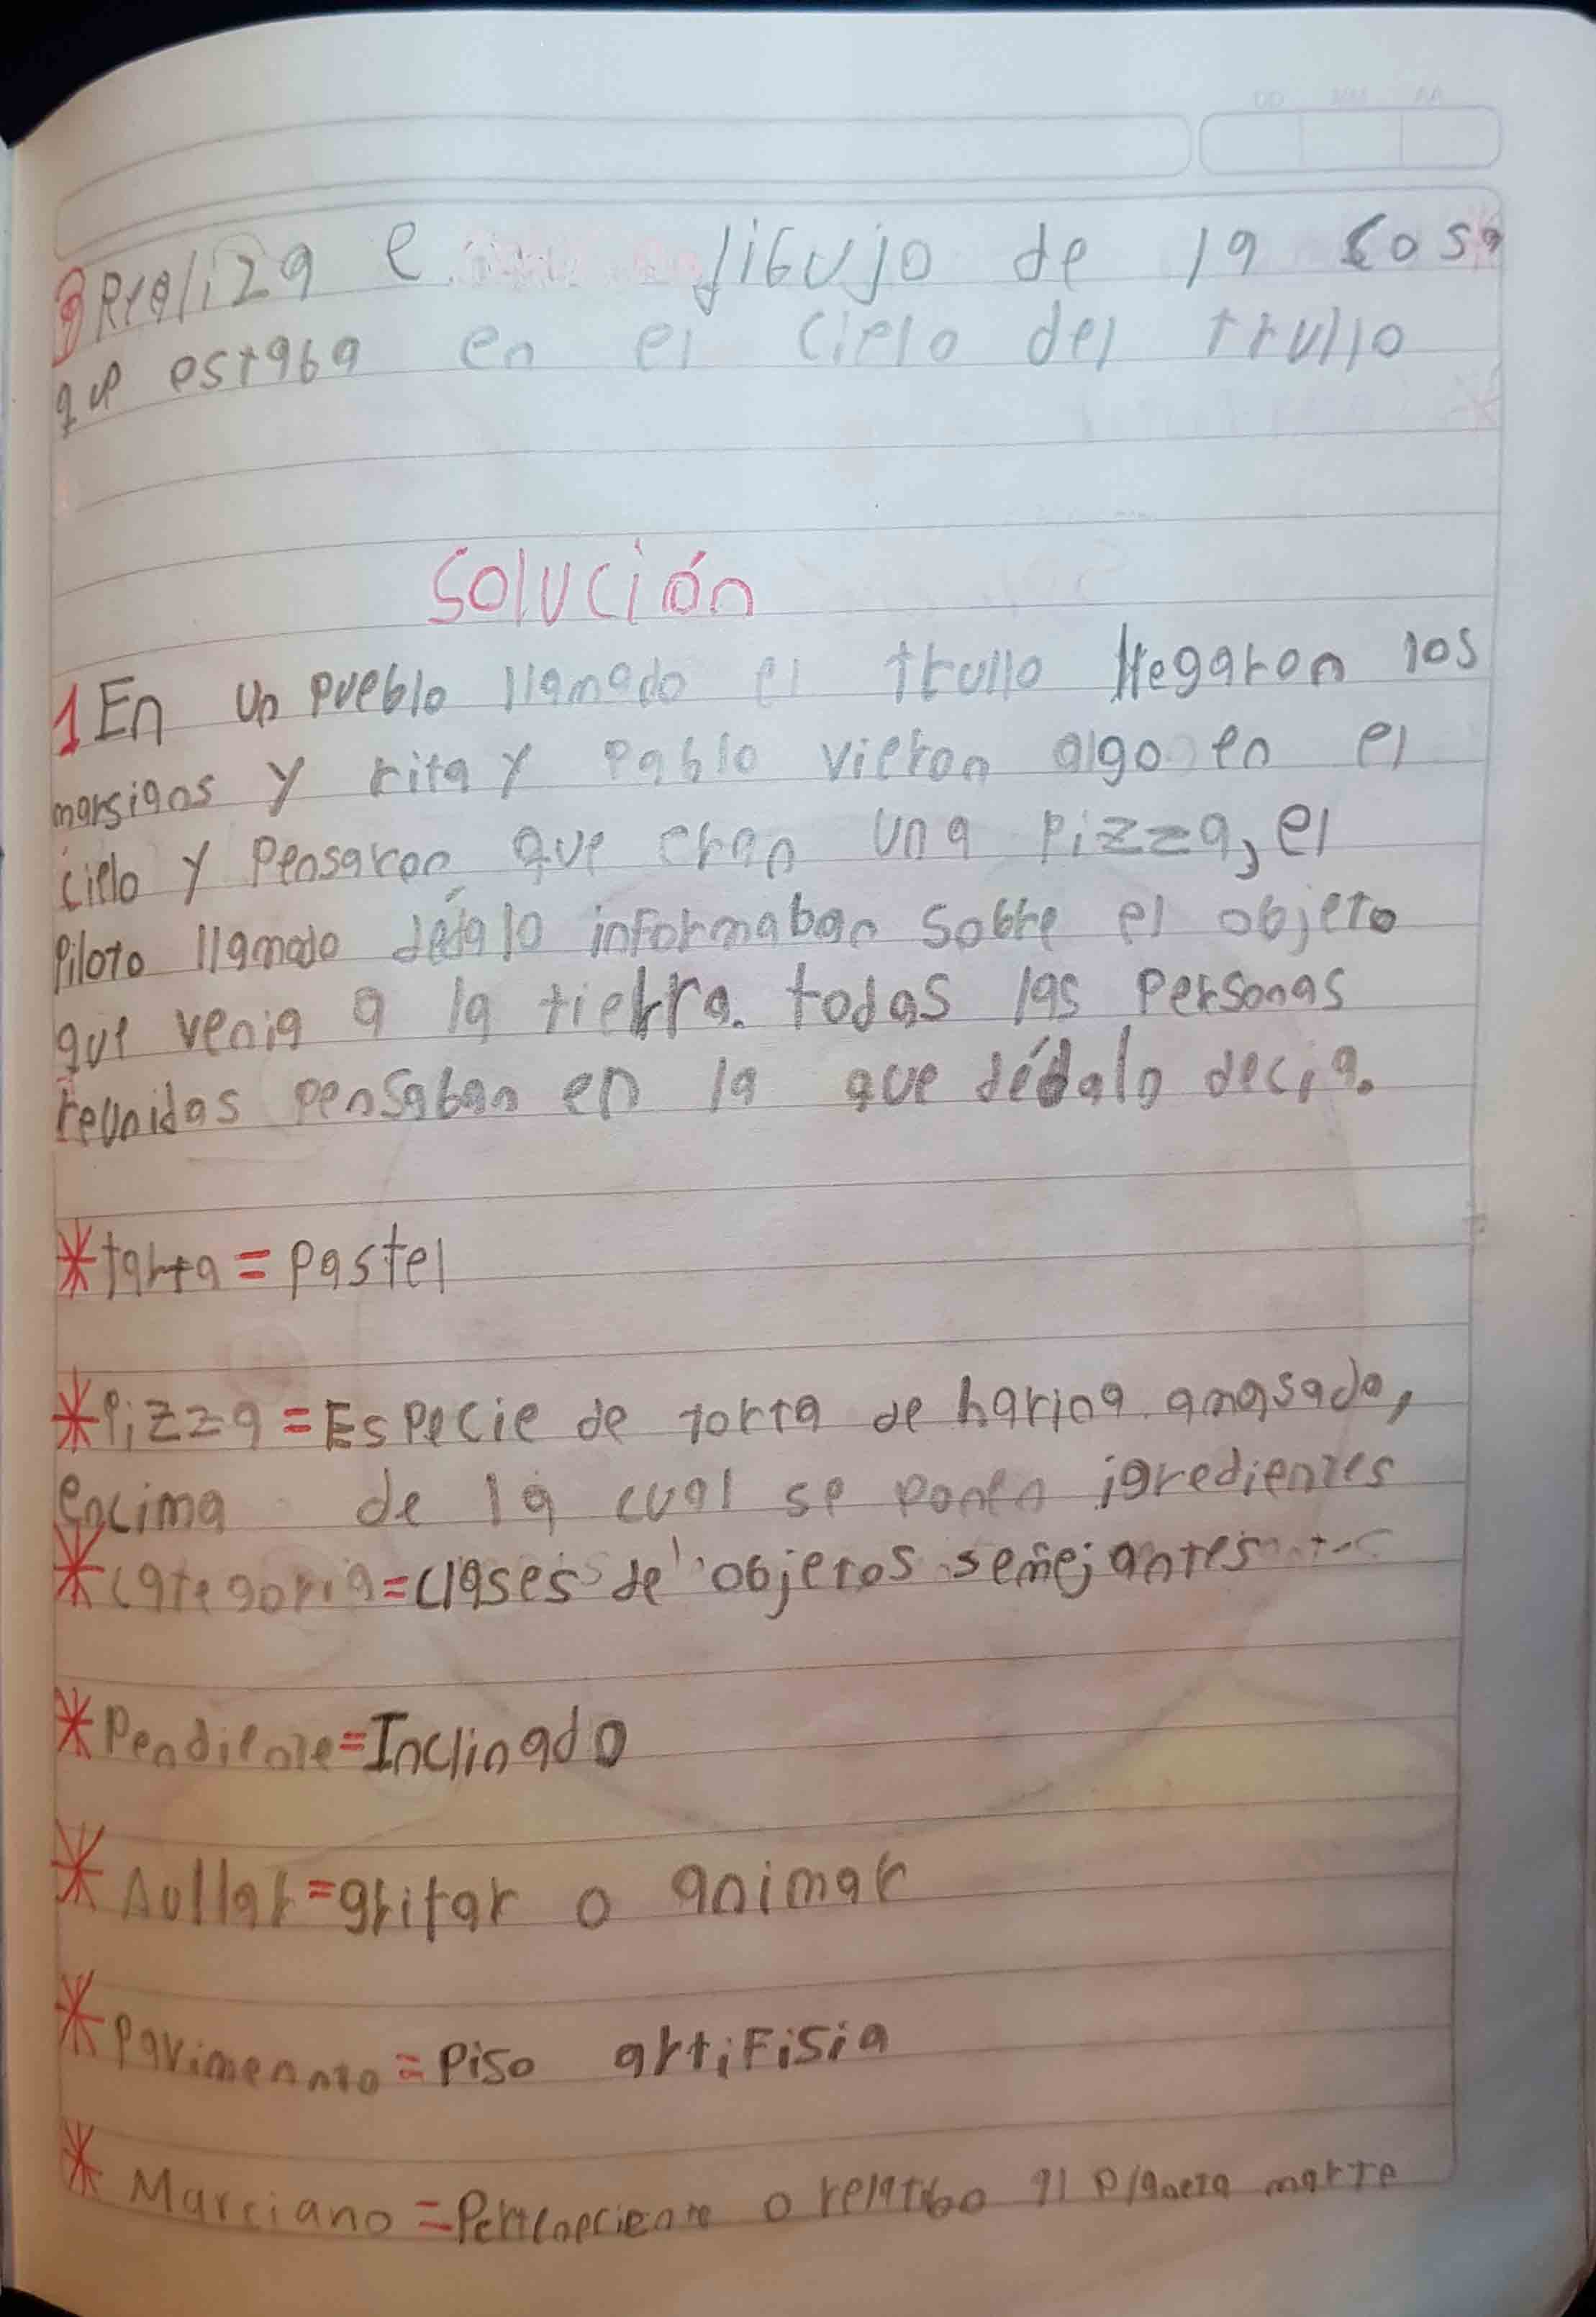 3 Realiza e dibujo de la cosa
que estaba en el cielo del trullo
Solución
1 En un pueblo llamado el trullo llegaron los
marsianos y rita y Pablo vieron algo en el
cielo y pensaron que eran una pizza, el
piloto llamado dédalo informaban sobre el objeto
que venia a la tierra. todas las personas
reunidas pensaban en la que dédalo decia.
*tarta = pastel
*Pizza = Especie de torta de harina amasada,
encima de la cual se ponen igredientes
*categoria = clases de objetos semejantes
*Pendiente = Inclinado
*Aullar = gritar o animar
*Pavimennto = Piso artifisia
*Marciano = Perteneciente o relatibo al planeta marte